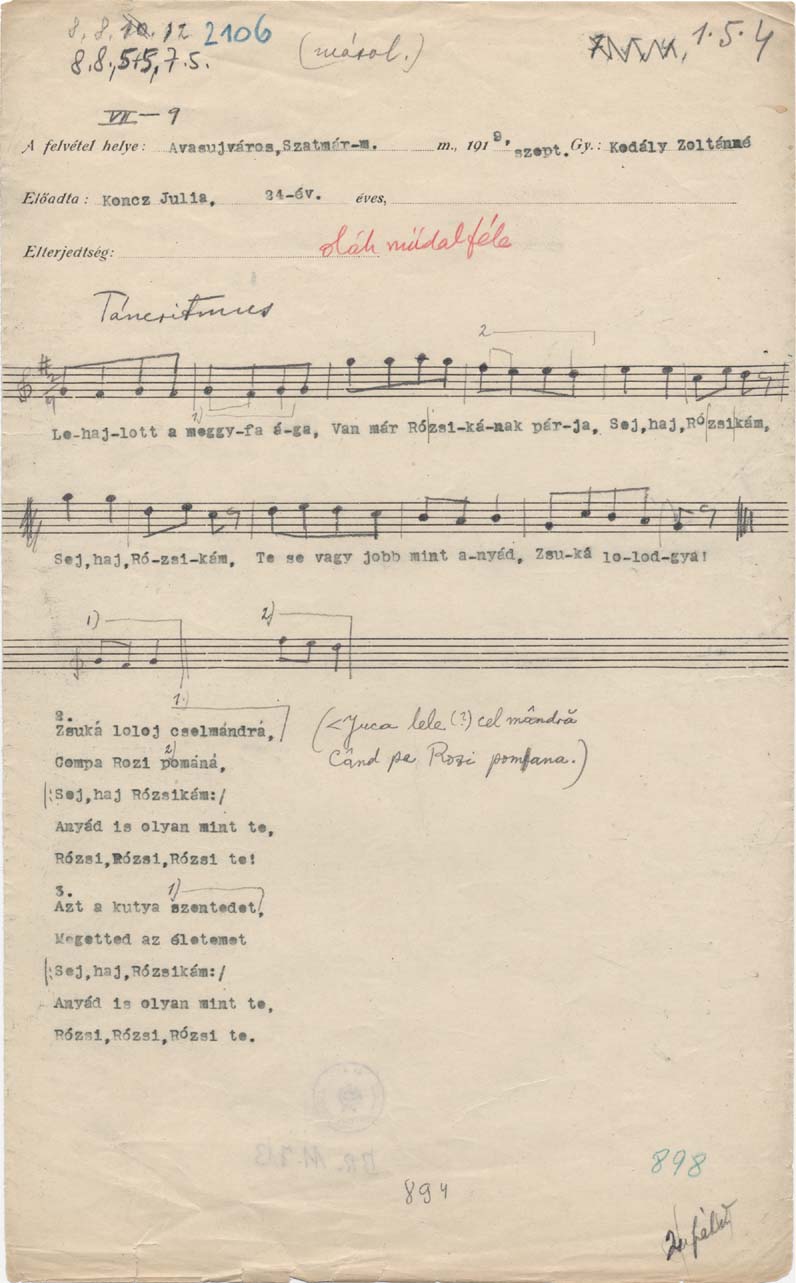 8, 8, 10. 12 2106 (másol.) 1.5.4
8.8,5+5,7.5.
VII — 9
A felvétel helye: Avasujváros,Szatmár-m. m., 1919, szept. Gy.: Kodály Zoltánné
Előadta: Koncz Julia, 24-év. éves,
Elterjedtség: oláh műdalféle
Táncritmus
2
1)
Le-haj-lott a meggy-fa á-ga, Van már Rózsi-ká-nak pár-ja, Sej,haj,Rózsikám,
Sej,haj,Ró-zsi-kám, Te se vagy jobb mint a-nyád, Zsu-ká lo-lod-gya!
1) 2)
2. 1.)
Zsuká loloj cselmándrá, (<Juca lele (?) cel mândră
Compa Rozi 2) pománá, Când pe Rozi pomana.)
/:Sej,haj Rózsikám:/
Anyád is olyan mint te,
Rózsi,Rózsi,Rózsi te!
3. 1)
Azt a kutya szentedet,
Megetted az életemet
/:Sej,haj,Rózsikám:/
Anyád is olyan mint te,
Rózsi,Rózsi,Rózsi te.
898
894